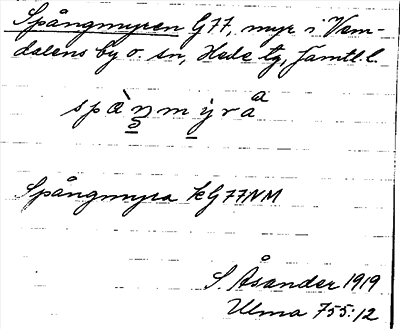 Spångmyren G77, myr i Vem-
dalens by o sn, Hede tg, Jämtl. l.
Spångmyra kG77NM
S. Åsander 1919
Ulma 755:12